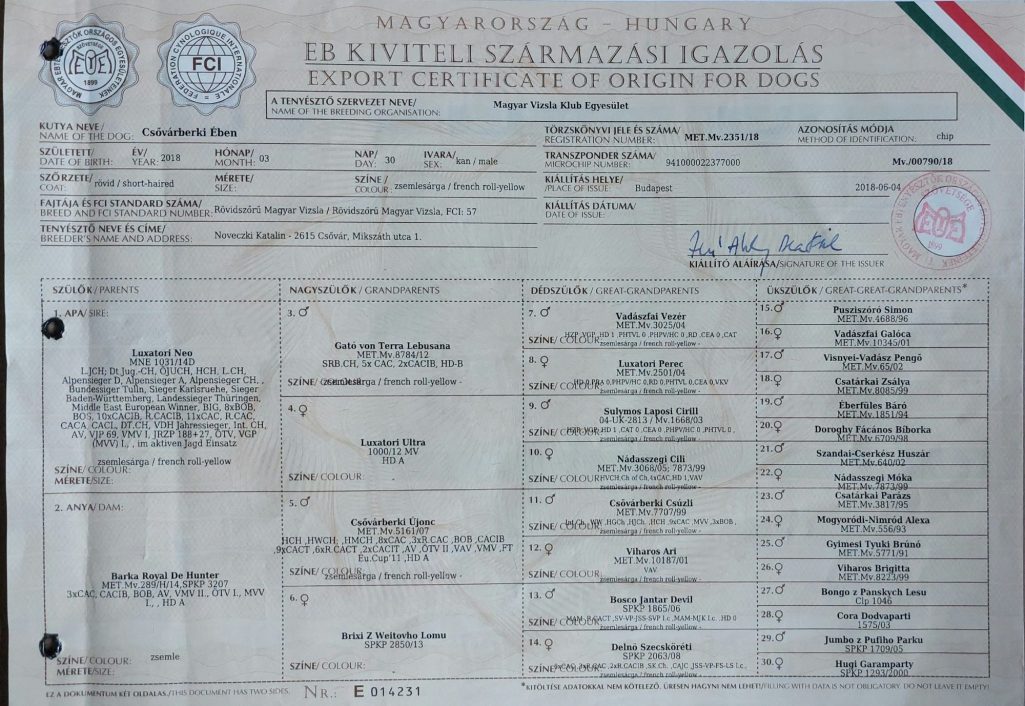 MAGYARORSZÁG - HUNGARY
EB KIVITELI SZÁRMAZÁSI IGAZOLÁS
EXPORT CERTIFICATE OF ORIGIN FOR DOGS
1899
FCI
FEDERATION CYNOLOGIQUE INTERNATIONALE
A TENYÉSZTŐ SZERVEZET NEVE/
NAME OF THE BREEDING ORGANISATION:
Magyar Vizsla Klub Egyesület
KUTYA NEVE/
NAME OF THE DOG: Csővárberki Ében
TÖRZSKÖNYVI JELE ÉS SZÁMA/
REGISTRATION NUMBER: MET.Mv.2351/18
AZONOSÍTÁS MÓDJA
METHOD OF IDENTIFICATION: chip
SZÜLETETT/
DATE OF BIRTH:
ÉV/
YEAR: 2018
HÓNAP/
MONTH: 03
NAP/
DAY: 30
IVARA/
SEX: kan / male
TRANSZPONDER SZÁMA/
MICROCHIP NUMBER: 941000022377000
Mv./00790/18
SZŐRZETE/
COAT: rövid / short-haired
MÉRETE/
SIZE:
SZÍNE/
COLOUR: zsemlesárga / french roll-yellow
KIÁLLÍTÁS HELYE/
/PLACE OF ISSUE: Budapest
2018-06-04
FAJTÁJA ÉS FCI STANDARD SZÁMA/
BREED AND FCI STANDARD NUMBER: Rövidszőrű Magyar Vizsla / Rövidszőrű Magyar Vizsla, FCI: 57
KIÁLLÍTÁS DÁTUMA/
DATE OF ISSUE:
TENYÉSZTŐ NEVE ÉS CÍME/
BREEDER'S NAME AND ADDRESS: Noveczki Katalin - 2615 Csővár, Mikszáth utca 1.
1899
KIÁLLÍTÓ ALÁÍRÁSA/SIGNATURE OF THE ISSUER
SZÜLŐK/PARENTS
1. APA/SIRE:
Luxatori Neo
MNE 1031/14D
L.JCH; Dt.Jug.-CH, ÖJUCH, HCH, L.CH,
Alpensieger D, Alpensieger A, Alpensieger CH. ,
Bundessiger Tulln, Sieger Karlsruhe, Sieger
Baden-Württemberg, Landessieger Thüringen,
Middle East European Winner, BIG, 8xBOB,
BOS, 10xCACIB, R.CACIB, 11xCAC, R.CAC,
CACA, CACL, DT.CH, VDH Jahressieger, Int. CH,
AV, VJP 69, VMV I, JRZP 188+27, ÖTV, VGP
(MVV) I., , im aktiven Jagd Einsatz
zsemlesárga / french roll-yellow
SZÍNE/ COLOUR:
MÉRETE/SIZE:
2. ANYA/DAM:
Barka Royal De Hunter
MET.Mv.289/H/14,SPKP 3207
3xCAC, CACIB, BOB, AV, VMV II., ÖTV I., MVV
I., , HD A
SZÍNE/ COLOUR: zsemle
MÉRETE/SIZE:
NAGYSZÜLŐK / GRANDPARENTS
3. ♂
Gató von Terra Lebusana
MET.Mv.8784/12
SRB.CH, 5x CAC, 2xCACIB, HD-B
SZÍNE/ COLOUR: zsemlesárga / french roll-yellow -
4. ♀
Luxatori Ultra
1000/12 MV
HD A
SZÍNE/ COLOUR: -
5. ♂
Csővárberki Újonc
MET.Mv.5161/07
HCH ,HWCH, ,HMCH ,8xCAC ,3xR.CAC ,BOB ,CACIB
,9xCACT ,6xR.CACT ,2xCACIT ,AV ,ÖTV II ,VAV ,VMV ,FT
Eu.Cup'11 ,HD A
SZÍNE/ COLOUR: zsemlesárga / french roll-yellow -
6. ♀
Brixi Z Weitovho Lomu
SPKP 2850/13
SZÍNE/ COLOUR: -
DÉDSZÜLŐK / GREAT-GRANDPARENTS
7. ♂
Vadászfai Vezér
MET.Mv.3025/04
HZP ,VGP ,HD 1 ,PHTVL 0 ,PHPV/HC 0 ,RD 0 ,CEA 0 ,CAT
SZÍNE/ COLOUR: zsemlesárga / french roll-yellow -
8. ♀
Luxatori Perec
MET.Mv.2501/04
HD 0,PRA 0,PHPV/HC 0,RD 0,PHTVL 0,CEA 0,VKV
SZÍNE/ COLOUR: zsemlesárga / french roll-yellow -
9. ♂
Sulymos Laposi Cirill
04-UK-2813 / Mv.1668/03
SZÍNE/ COLOUR: zsemlesárga / french roll-yellow -
10. ♀
Nádasszegi Cili
MET.Mv.3068/05; 7873/99
HVCH,Ch of Ch,4xCAC,HD 1,VAV
SZÍNE/ COLOUR: zsemlesárga / french roll-yellow -
11. ♂
Csővárberki Csúzli
MET.Mv.7707/99
Int.Ch ,WW ,HGCh ,HJCh. ,HCH ,9xCAC ,MVV ,3xBOB ,
SZÍNE/ COLOUR: zsemlesárga / french roll-yellow -
12. ♀
Viharos Ari
MET.Mv.10187/01
VAV
SZÍNE/ COLOUR: zsemlesárga / french roll-yellow -
13. ♂
Bosco Jantar Devil
SPKP 1865/06
SZÍNE/ COLOUR: zsemlesárga / french roll-yellow -
14. ♀
Delnő Zecsköréti
SPKP 2063/08
SZÍNE/ COLOUR: zsemlesárga / french roll-yellow -
ÜKSZÜLŐK / GREAT-GREAT-GRANDPARENTS*
15. ♂ Pusziszóró Simon
MET.Mv.4688/96
16. ♀ Vadászfai Galóca
MET.Mv.10345/01
17. ♂ Visnyei-Vadász Pengő
MET.Mv.65/02
18. ♀ Csatárkai Zsálya
MET.Mv.8085/99
19. ♂ Éberfüles Báró
MET.Mv.1851/94
20. ♀ Doroghy Fácános Bíborka
MET.Mv.6709/98
21. ♂ Szandai-Cserkész Huszár
MET.Mv.640/02
22. ♀ Nádasszegi Móka
MET.Mv.7873/99
23. ♂ Csatárkai Parázs
MET.Mv.3817/95
24. ♀ Mogyoródi-Nimród Alexa
MET.Mv.556/93
25. ♂ Gyimesi Tyuki Brúnó
MET.Mv.5771/91
26. ♀ Viharos Brigitta
MET.Mv.8223/99
27. ♂ Bongo z Panskych Lesu
Clp 1046
28. ♀ Cora Dodvaparti
1575/03
29. ♂ Jumbo z Pufiho Parku
SPKP 1709/05
30. ♀ Hugi Garamparty
SPKP 1293/2000
EZ A DOKUMENTUM KÉT OLDALAS/THIS DOCUMENT HAS TWO SIDES.
NR.: E 014231
*KITÖLTÉSE ADATOKKAL NEM KÖTELEZŐ, ÜRESEN HAGYNI NEM LEHET!/FILLING WITH DATA IS NOT OBLIGATORY. DO NOT LEAVE IT EMPTY!